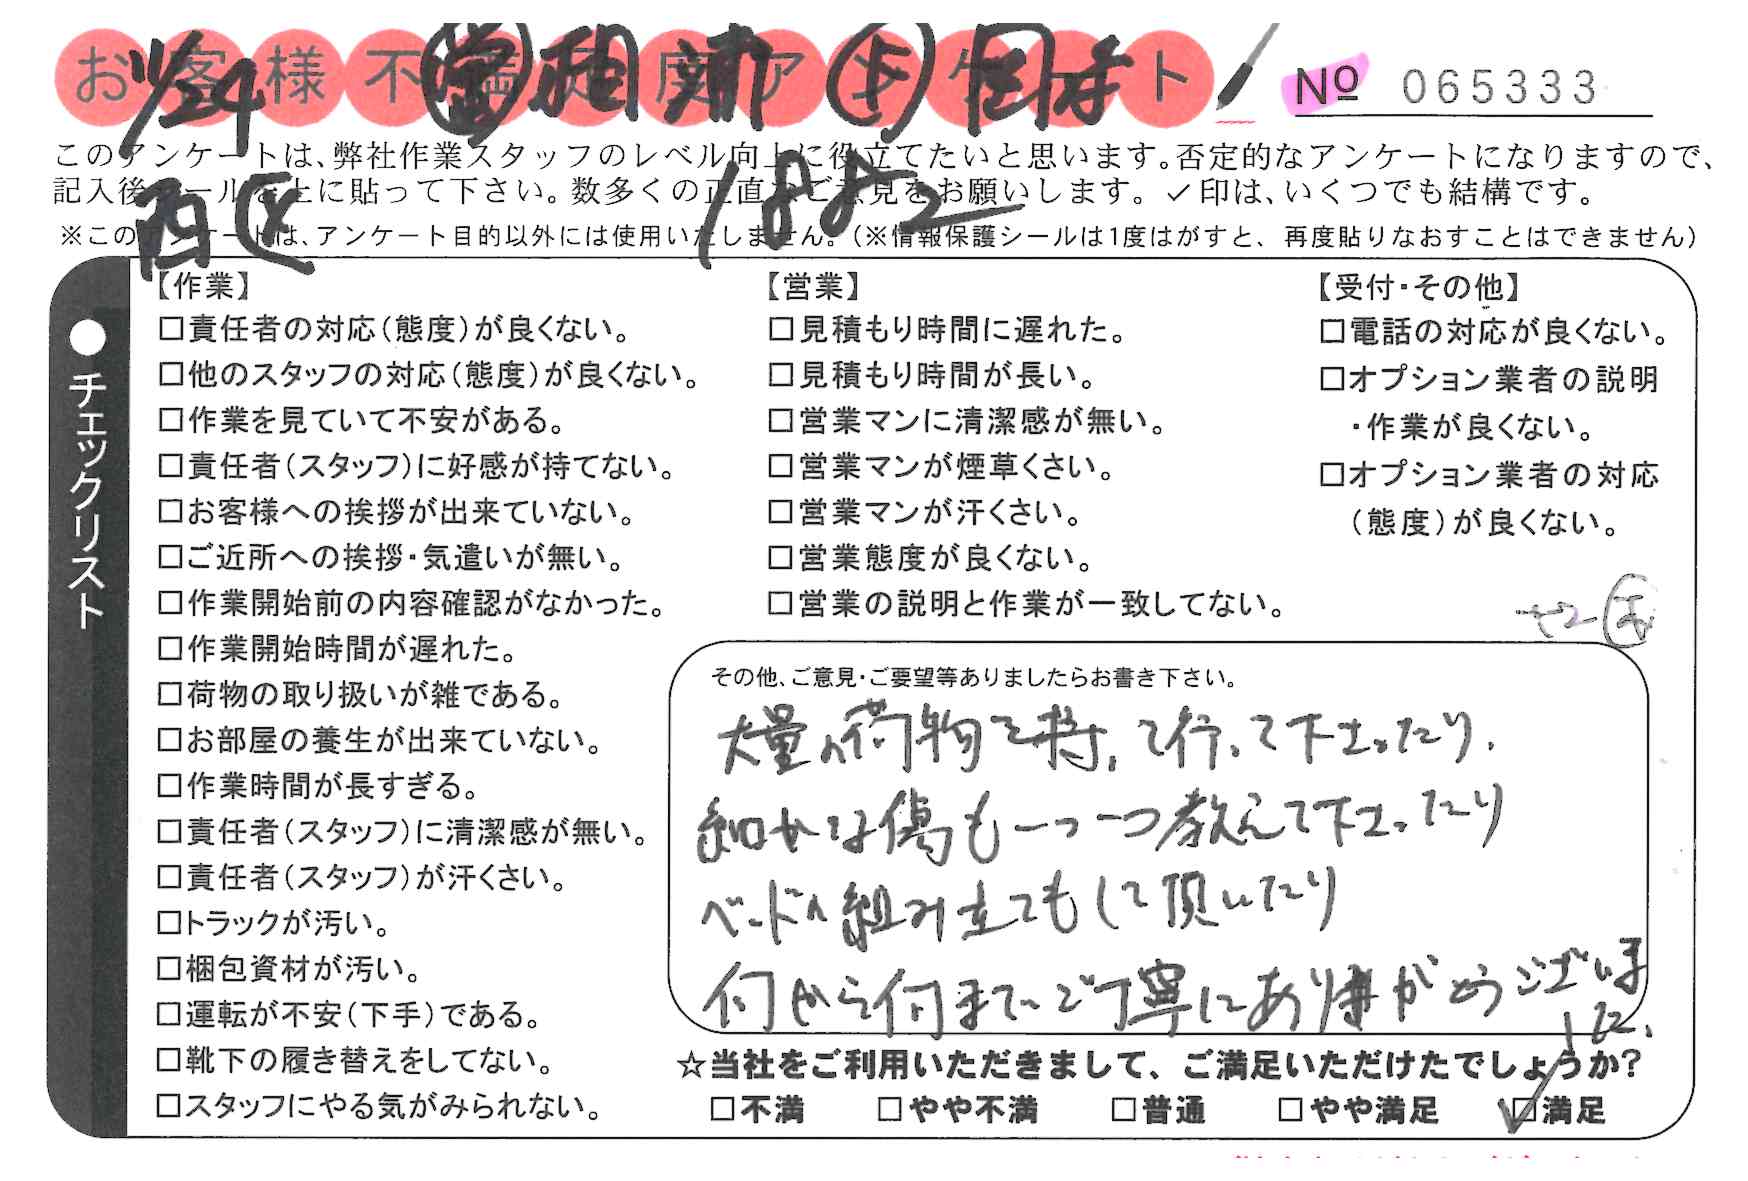 お客様不満足度アンケート
11/24 営 相浦 ト 田本
№ 065333
西区 1882
このアンケートは、弊社作業スタッフのレベル向上に役立てたいと思います。否定的なアンケートになりますので、
記入後シールを上に貼って下さい。数多くの正直なご意見をお願いします。✓印は、いくつでも結構です。
※このアンケートは、アンケート目的以外には使用いたしません。（※情報保護シールは1度はがすと、再度貼りなおすことはできません）
●チェックリスト
【作業】
□責任者の対応（態度）が良くない。
□他のスタッフの対応（態度）が良くない。
□作業を見ていて不安がある。
□責任者（スタッフ）に好感が持てない。
□お客様への挨拶が出来ていない。
□ご近所への挨拶・気遣いが無い。
□作業開始前の内容確認がなかった。
□作業開始時間が遅れた。
□荷物の取り扱いが雑である。
□お部屋の養生が出来ていない。
□作業時間が長すぎる。
□責任者（スタッフ）に清潔感が無い。
□責任者（スタッフ）が汗くさい。
□トラックが汚い。
□梱包資材が汚い。
□運転が不安（下手）である。
□靴下の履き替えをしてない。
□スタッフにやる気がみられない。
【営業】
□見積もり時間に遅れた。
□見積もり時間が長い。
□営業マンに清潔感が無い。
□営業マンが煙草くさい。
□営業マンが汗くさい。
□営業態度が良くない。
□営業の説明と作業が一致してない。
【受付・その他】
□電話の対応が良くない。
□オプション業者の説明
・作業が良くない。
□オプション業者の対応
（態度）が良くない。
その他、ご意見・ご要望等ありましたらお書き下さい。
大量の荷物を持って行って下さったり、
細かな傷も一つ一つ教えて下さったり
ベッドの組み立てもして頂いたり
何から何までご丁寧にありがとうございま
した。
☆当社をご利用いただきまして、ご満足いただけたでしょうか？
□不満 □やや不満 □普通 □やや満足 ☑満足